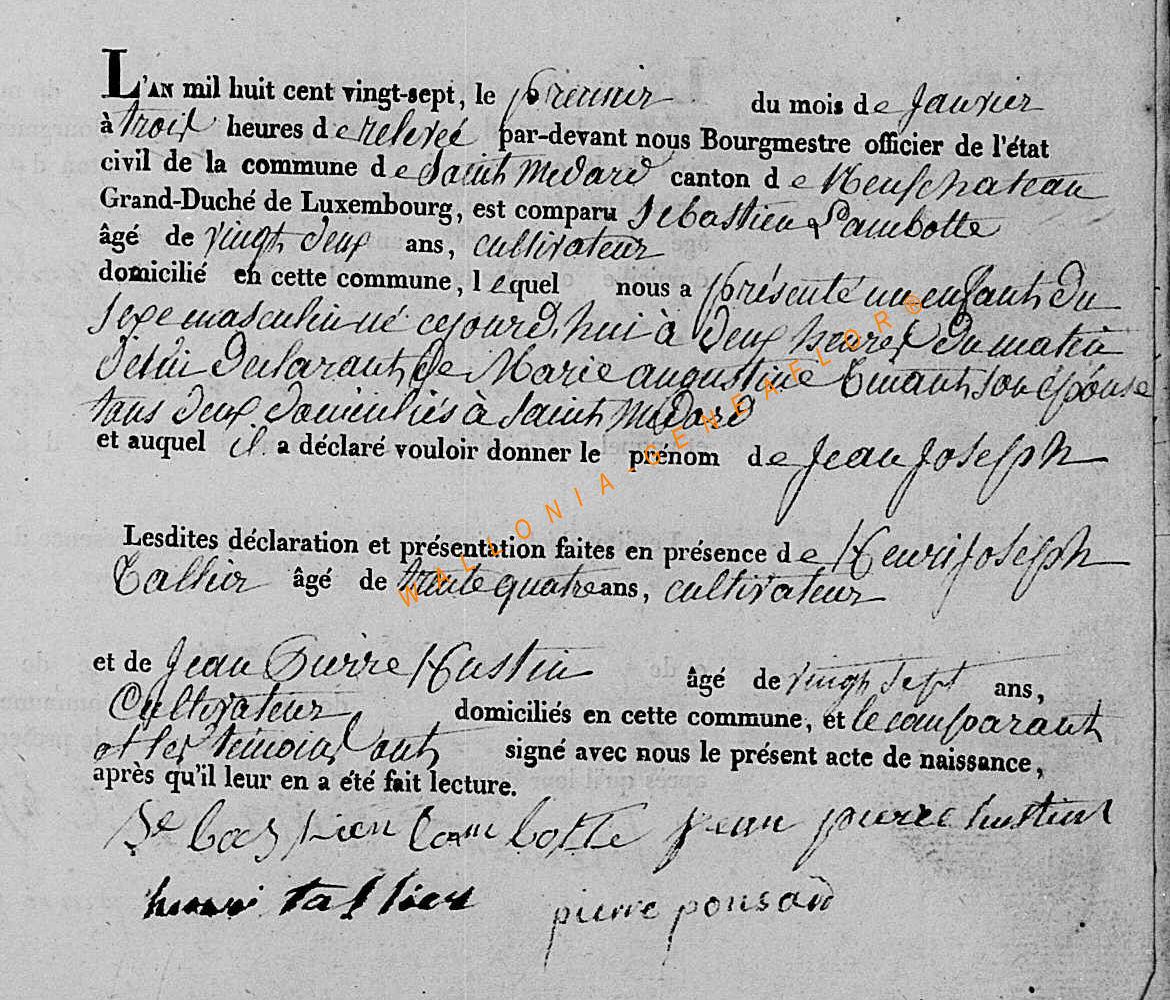 L'AN mil huit cent vingt-sept, le premier du mois de janvier
à trois heures de relevée par-devant nous Bourgmestre officier de l'état
civil de la commune de Saint Médard canton de Neufchateau
Grand-Duché de Luxembourg, est comparu Sebastien Lambotte
âgé de vingt deux ans, cultivateur
domicilié en cette commune, lequel nous a présenté un enfant du
sexe masculin né cejourd'hui à deux heures du matin
de lui declarant de Marie augustine Tinant son épouse
tous deux domiciliés à Saint Médard
et auquel il a déclaré vouloir donner le prénom de Jean Joseph
Lesdites déclaration et présentation faites en présence de Henri Joseph
Tallier âgé de trente quatre ans, cultivateur
et de Jean Pierre Hustin âgé de vingt sept ans,
Cultivateur domiciliés en cette commune, et le comparant
et les témoins ont signé avec nous le présent acte de naissance,
après qu'il leur en a été fait lecture.
Sebastien Lambotte jean pierre hustin
henri tallier pierre ponsard
WALLONIA-GENEAELOR®